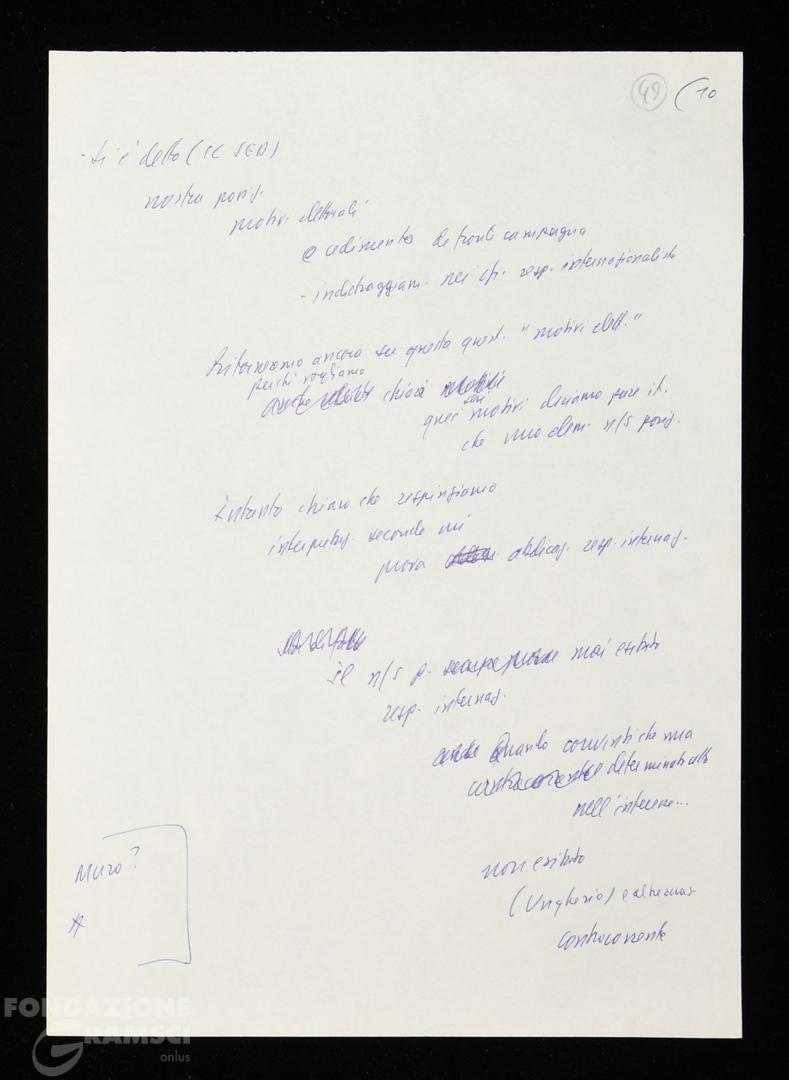 49 (10
- si è detto (CC SED)
nostra posiz.
motivi elettorali
o cedimento di fronte campagna
- indietreggiam. nei cfr. resp. internazionalista
Ritorneremo ancora su questa quest. "motivi elett."
perché vogliamo
chiarire
quei seri motivi diciamo pure it.
che muovono n/s posiz.
Intanto chiaro che respingiamo
interpretaz. secondo cui
prova abdicaz. resp. internaz.
Il n/s p. mai esitato
resp. internaz.
Quando convinti che una
determinata
nell'interesse...
non esitato
(Ungheria) e altre
controcorrente
Muro?
FONDAZIONE
GRAMSCI
onlus